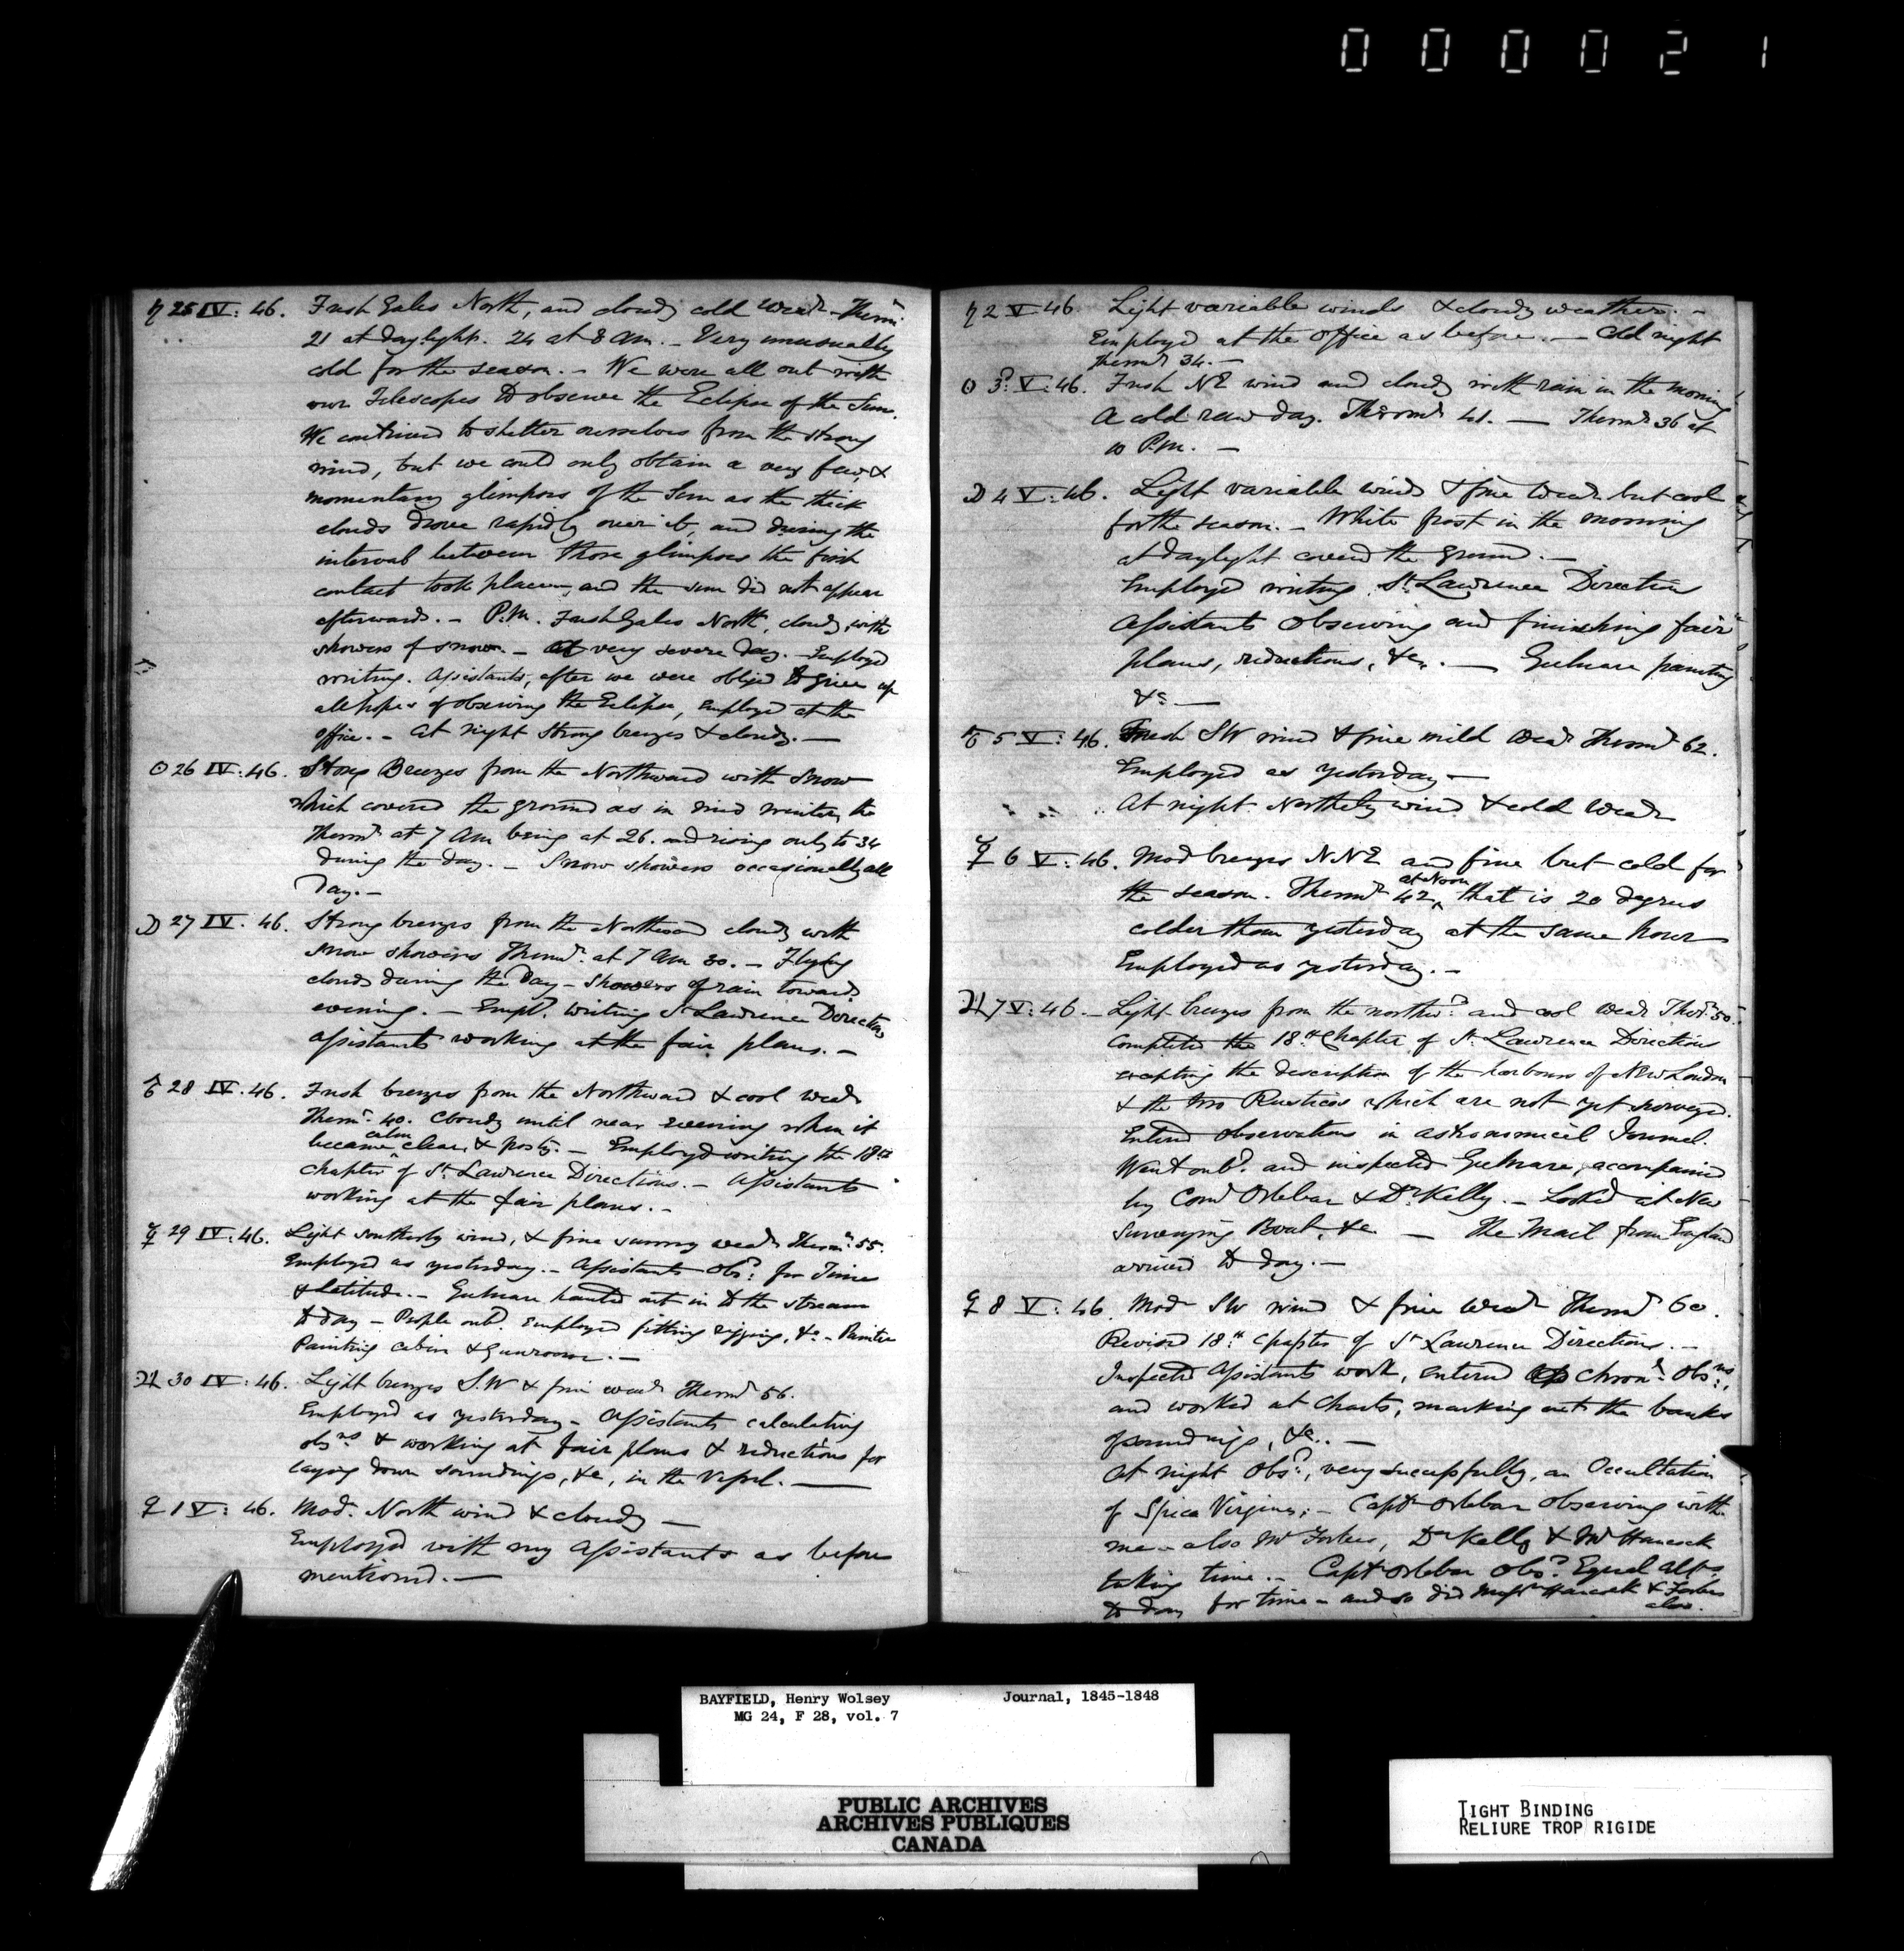 000021
♄ 25 IV: 46. Fresh Gales North, and cloudy cold Weathr. Thermr.
21 at daylight. 24 at 8 Am. - Very unusually
cold for the season. - We were all out with
our Telescopes to observe the Eclipse of the Sun.
We contrived to shelter ourselves from the strong
wind, but we could only obtain a very few, &
momentary glimpses of the Sun as the thick
clouds drove rapidly over it, and during the
interval between those glimpses the first
contact took place, and the sun did not appear
afterwards. - P.M. Fresh Gales North, cloudy, with
showers of snow. - A very severe day. - Employed
writing. Assistants, after we were obliged to give up
all hopes of observing the Eclipse, Employed at the
office. - At night strong breezes & cloudy. —
☉ 26 IV: 46. Strong Breezes from the Northward with Snow
which covered the ground as in mid winter, the
Thermr at 7 Am being at 26. and rising only to 34
during the day. - Snow showers occasionally all
Day. -
☽ 27 IV. 46. Strong breezes from the Northward cloudy with
snow showers Thermr. at 7 Am 30. - Flying
clouds during the Day - Showers of rain towards
evening. - Empd. writing St Lawrence Directions
Assistants working at the fair plans. -
♂ 28 IV. 46. Fresh breezes from the Northward & cool Weathr
Thermr. 40. Cloudy until near evening when it
calm
became ^ clear & frosty. - Employed writing the 18th
chapter of St. Lawrence Directions. - Assistants
working at the fair plans. -
☿ 29 IV: 46. Light southerly wind, & fine sunny weathr Thermr: 55.
Employed as yesterday. - Assistants Obsd: for Time
& Latitude. - Gulnare hauled out in to the stream
to day - People onbd. employed fitting rigging, &c - Painter
Painting cabin & Gunroom. —
♃ 30 IV: 46. Light breezes S.W & fine weathr Thermr 56.
Employed as yesterday - Assistants calculating
obsns & working at fair plans & reductions for
laying down soundings, &c, in the Vessel. —
♀ 1 V: 46. Mod. North wind & cloudy —
Employed with my Assistants as before
mentioned. —
♄ 2 V 46. Light variable winds & cloudy weather. -
Employed at the Office as before. — Cold night
Thermr 34. -
☉ 3d: V: 46. Fresh NE wind and cloudy with rain in the morning
A cold raw day. Thermr 41. — Thermr 36 at
10 P.m. -
☽ 4 V: 46. Light variable winds & fine Weathr but cool
for the season. - White frost in the morning
at daylight covered the ground. -
Employed writing St. Lawrence Directions
Assistants Observing and finishing fair
plans, reductions, &c. — Gulnare painting
&c —
♂ 5 V: 46. Fresh SW wind & fine mild Weathr Thermr 62.
Employed as yesterday -
At night Northerly wind & cold Weathr
☿ 6 V: 46. Mod breezes NNE and fine but cold for
at Noon
the season. Thermr 42 ^, that is 20 degrees
colder than yesterday at the same hour
Employed as yesterday. -
♃ 7 V: 46. - Light breezes from the northwd. and cool Weathr Ther. 50.
Completed the 18th Chapter of St. Lawrence Directions
excepting the description of the harbours of New London
& the two Rusticos which are not yet surveyed.
Entered observations in astronomical Journal.
Went onbd. and inspected Gulnare, accompanied
by Comr Orlebar & Dr Kelly. - Looked at New
Surveying Boat, &c — The Mail from England
arrived to day. -
♀ 8 V: 46. Modr SW wind & fine Weathr Thermr 60.
Revised 18th Chapter of St Lawrence Directions. -
Inspected Assistants work, entered Chronr. Obsns:,
and worked at Charts, marking out the banks
of soundings, &c. -
At night Obsd:, very successfully, an Occultation
of Spica Virginis; - Captn Orlebar observing with
me - also Mr Forbes, Dr Kelly & Mr Hancock
taking time. - Captn Orlebar Obsd. Equal Alts
to day for time - and so did Messrs Hancock & Forbes
also.
BAYFIELD, Henry Wolsey Journal, 1845-1848
MG 24, F 28, vol. 7
PUBLIC ARCHIVES
ARCHIVES PUBLIQUES
CANADA
TIGHT BINDING
RELIURE TROP RIGIDE